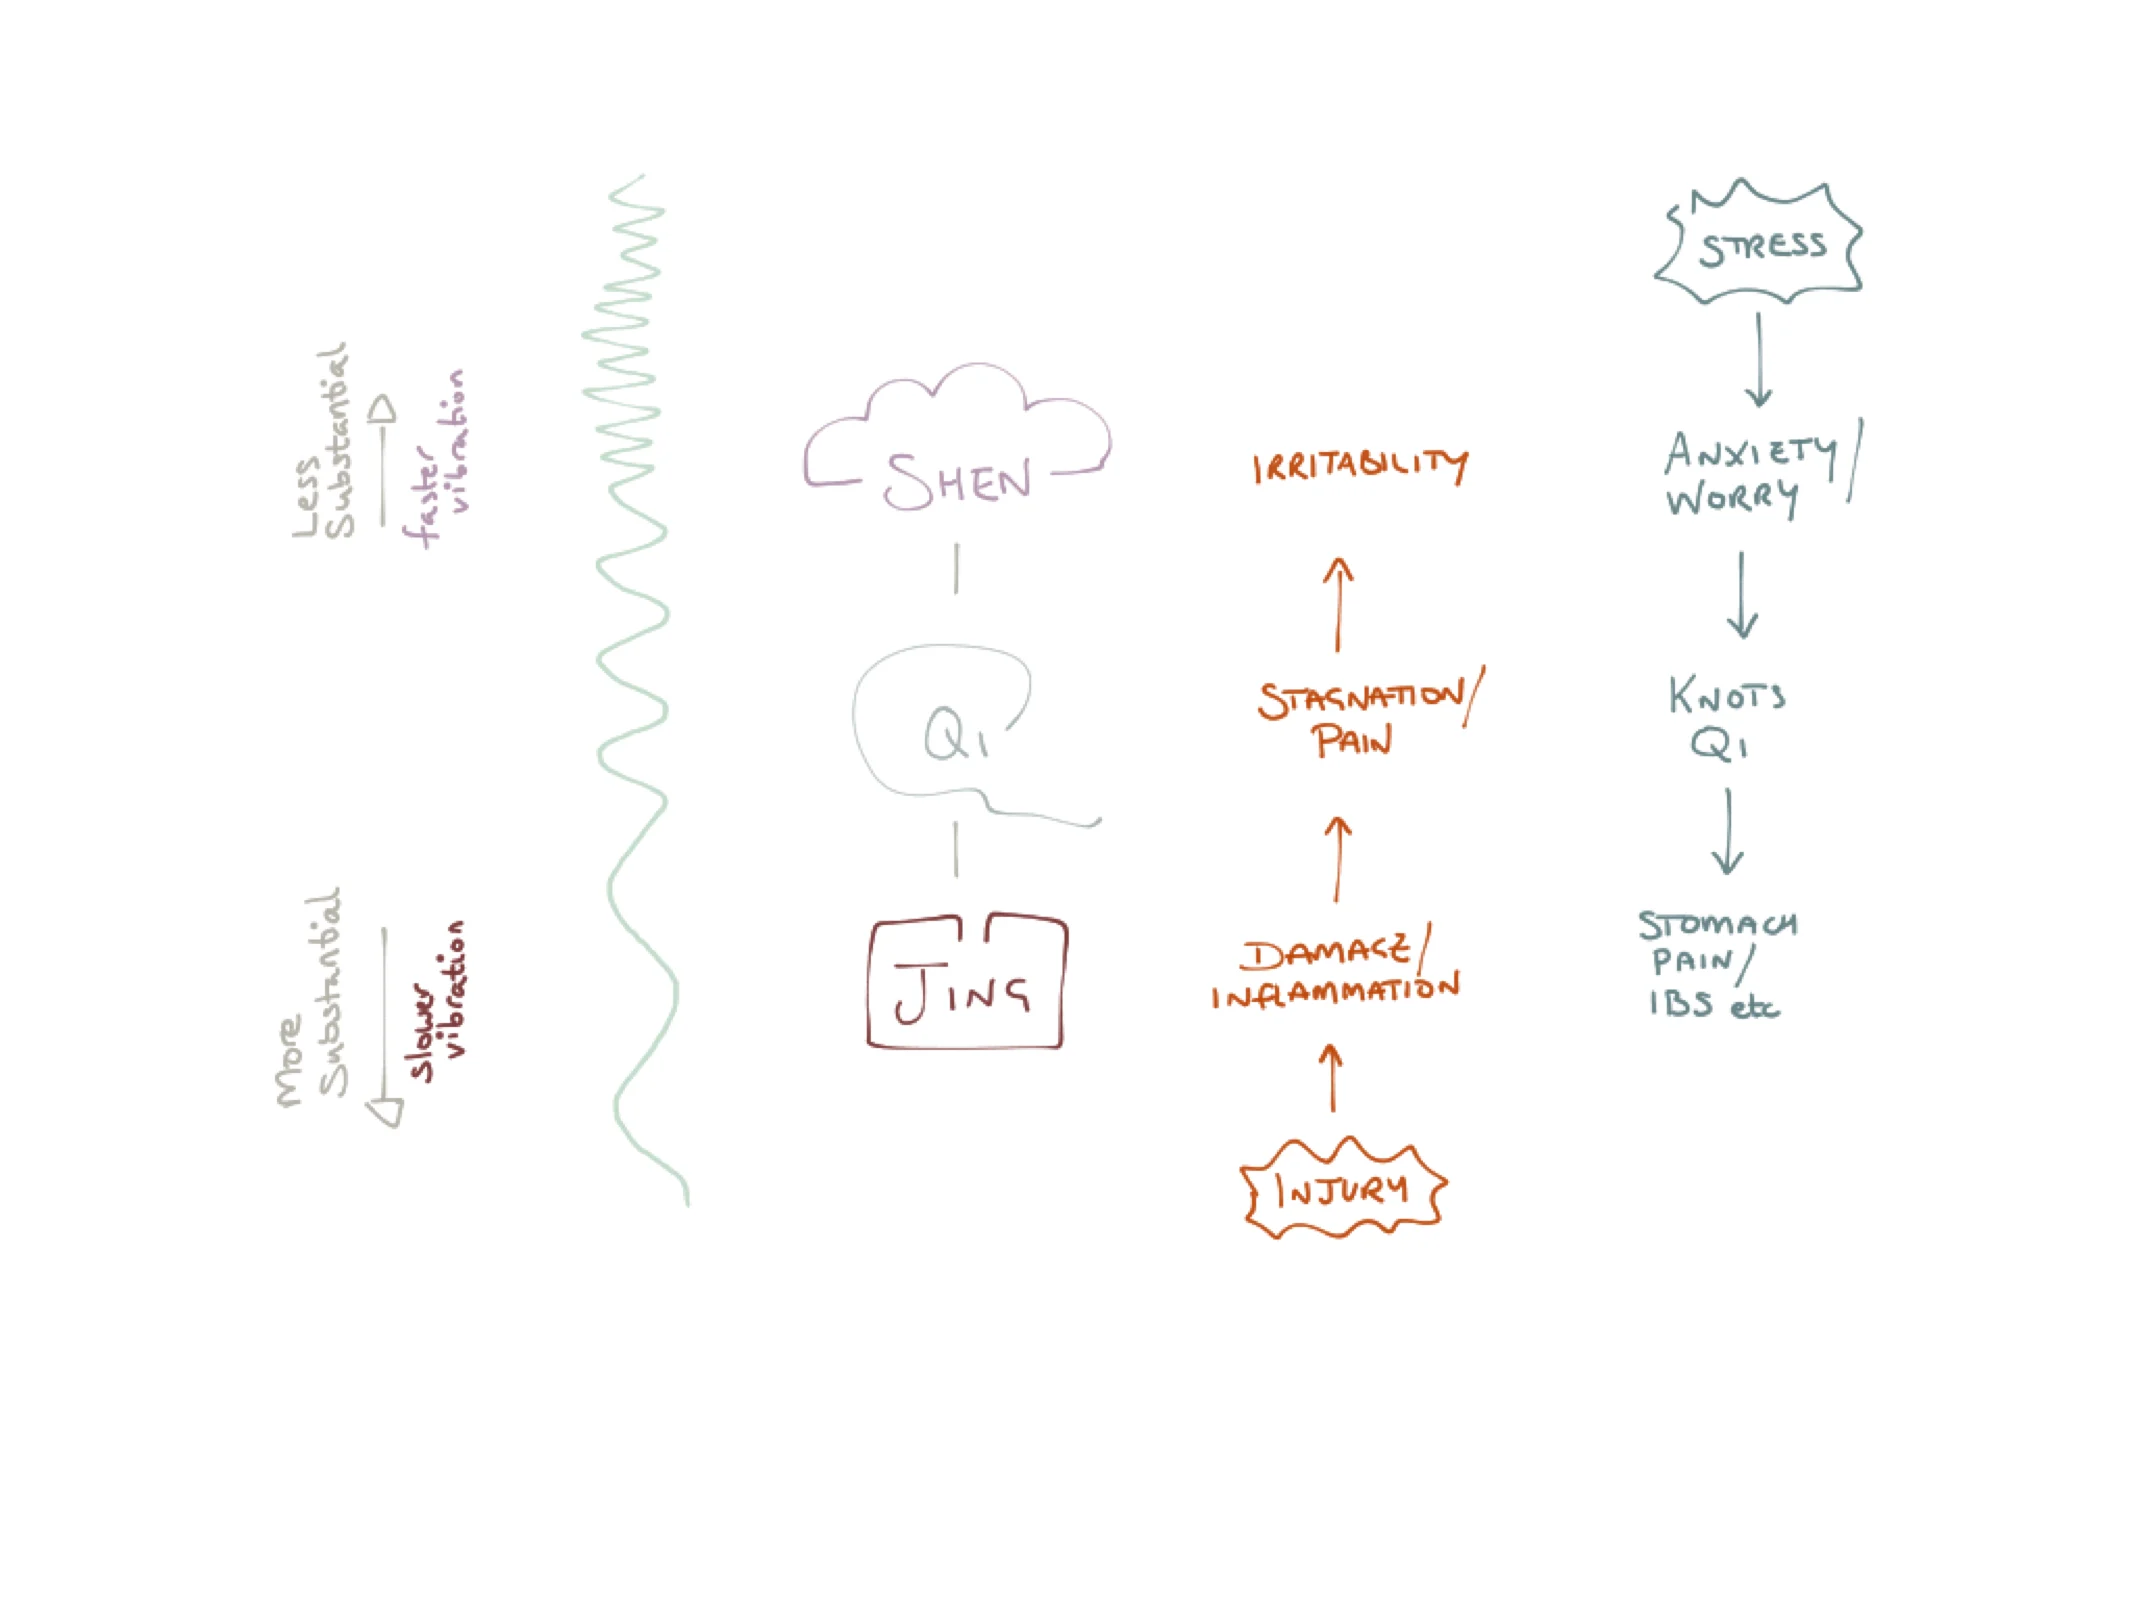 Less
Substantial
faster
vibration
More
Substantial
slower
vibration
SHEN
QI
JING
IRRITABILITY
STAGNATION/
PAIN
DAMAGE/
INFLAMMATION
INJURY
STRESS
ANXIETY/
WORRY
KNOTS
QI
STOMACH
PAIN/
IBS etc